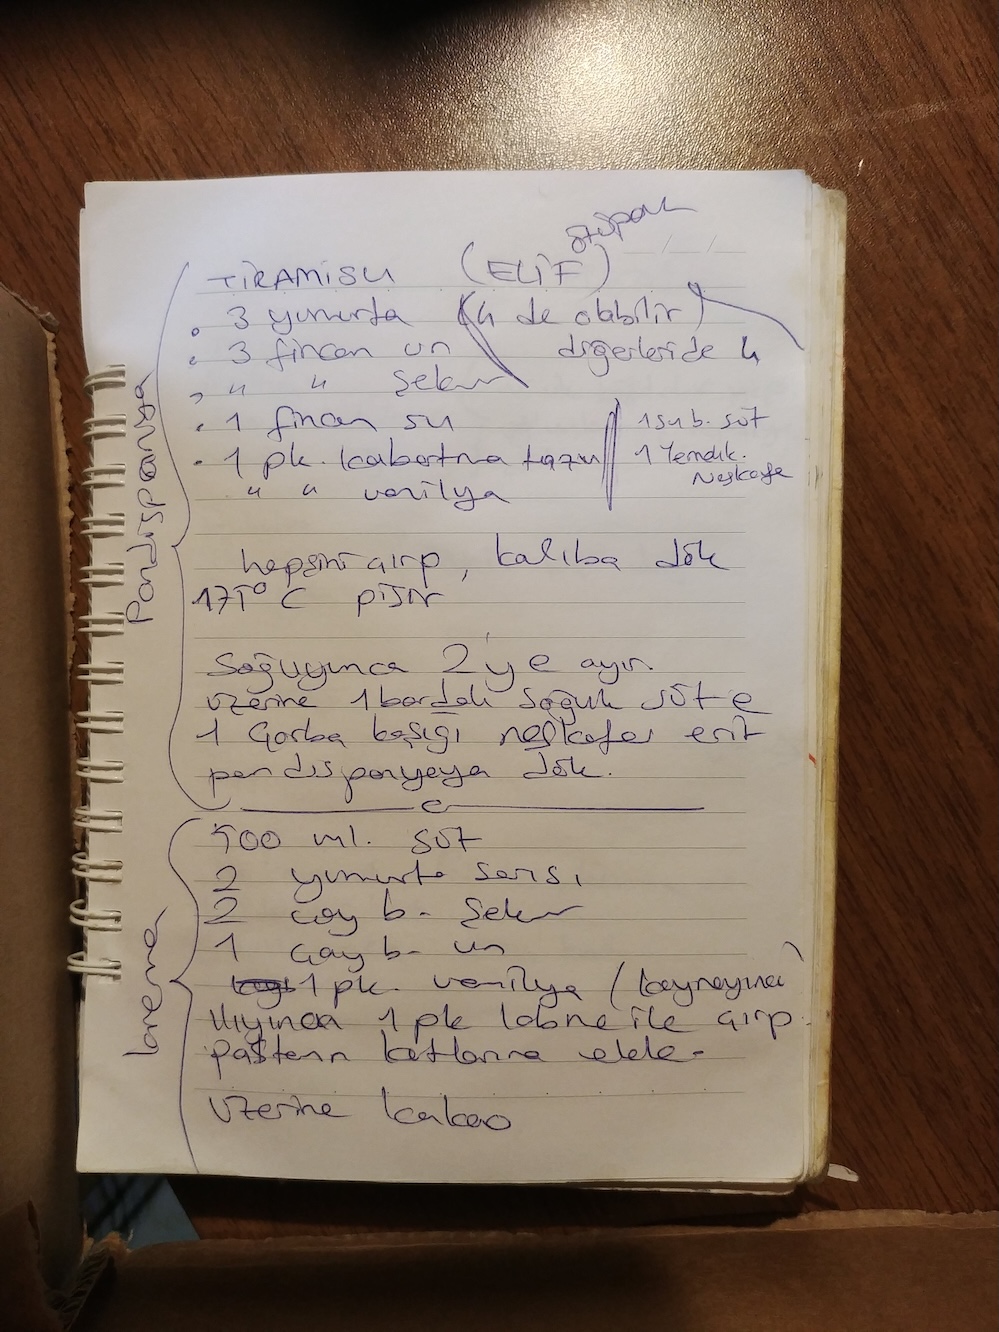 TİRAMİSU (ELİF)
• 3 yumurta (4 de olabilir)
• 3 fincan un diğerleride 4
• " " şeker
• 1 fincan su
1 su b. süt
• 1 pk. kabartma tozu
1 Yemek k. Neskafe
" " vanilya
hepsini çırp, kalıba dök
175° C pişir
Soğuyunca 2 ye ayır
üzerine 1 bardak soğuk süt e
1 Çorba kaşığı neskafe erit
pandispanyaya dök.
Pandispanya
500 ml. süt
2 yumurta sarısı
2 çay b. şeker
1 çay b. un
1 pk. vanilya (kaynayınca)
Ilıyınca 1 pk labne ile çırp
pastanın katlarına ekle.
üzerine kakao
krema